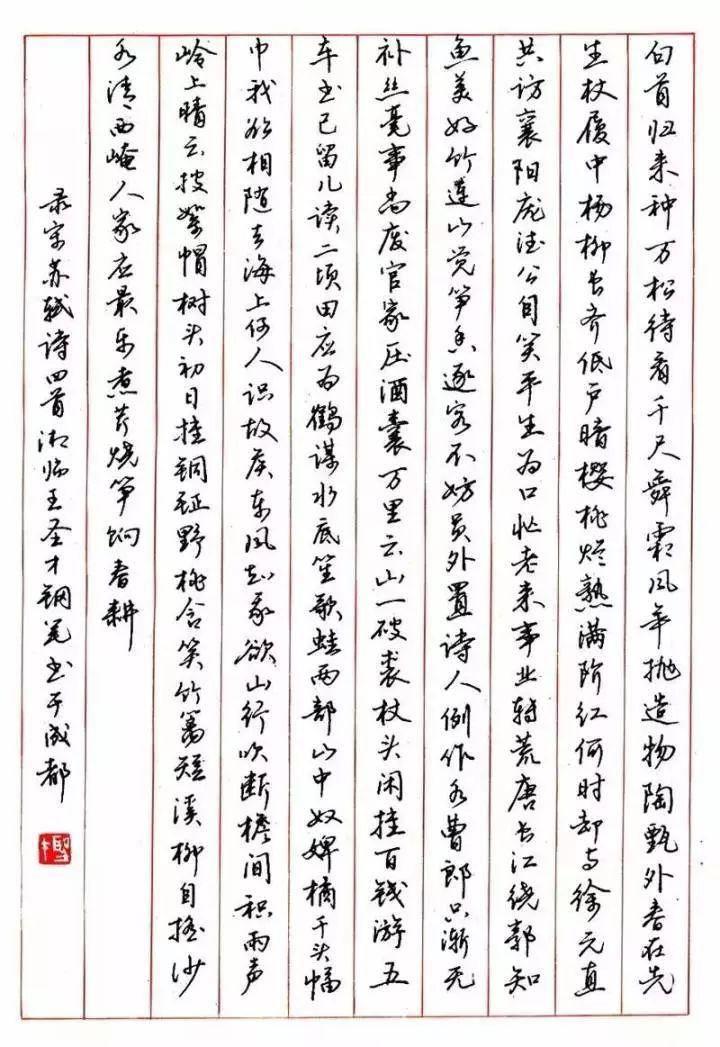 白首归来种万松待看千尺舞霜风年抛造物陶甄外春在先
生杖履中杨柳长齐低户暗樱桃烂熟满阶红何时却与徐元直
共访襄阳庞德公自笑平生为口忙老来事业转荒唐长江绕郭知
鱼美好竹连山觉笋香逐客不妨员外置诗人例作水曹郎只渐无
补丝毫事尚废官家压酒囊万里云山一破裘杖头闲挂百钱游五
车书已留儿读二顷田应为鹤谋水底笙歌蛙两部山中奴婢橘千头幅
巾我欲相随去海上何人识故侯东风知我欲山行吹断檐间积雨声
岭上晴云披絮帽树头初日挂铜钲野桃含笑竹篱短溪柳自摇沙
水清西崦人家应最乐煮芹烧笋饷春耕
录宋苏轼诗四首湘临王圣才钢笔书于成都